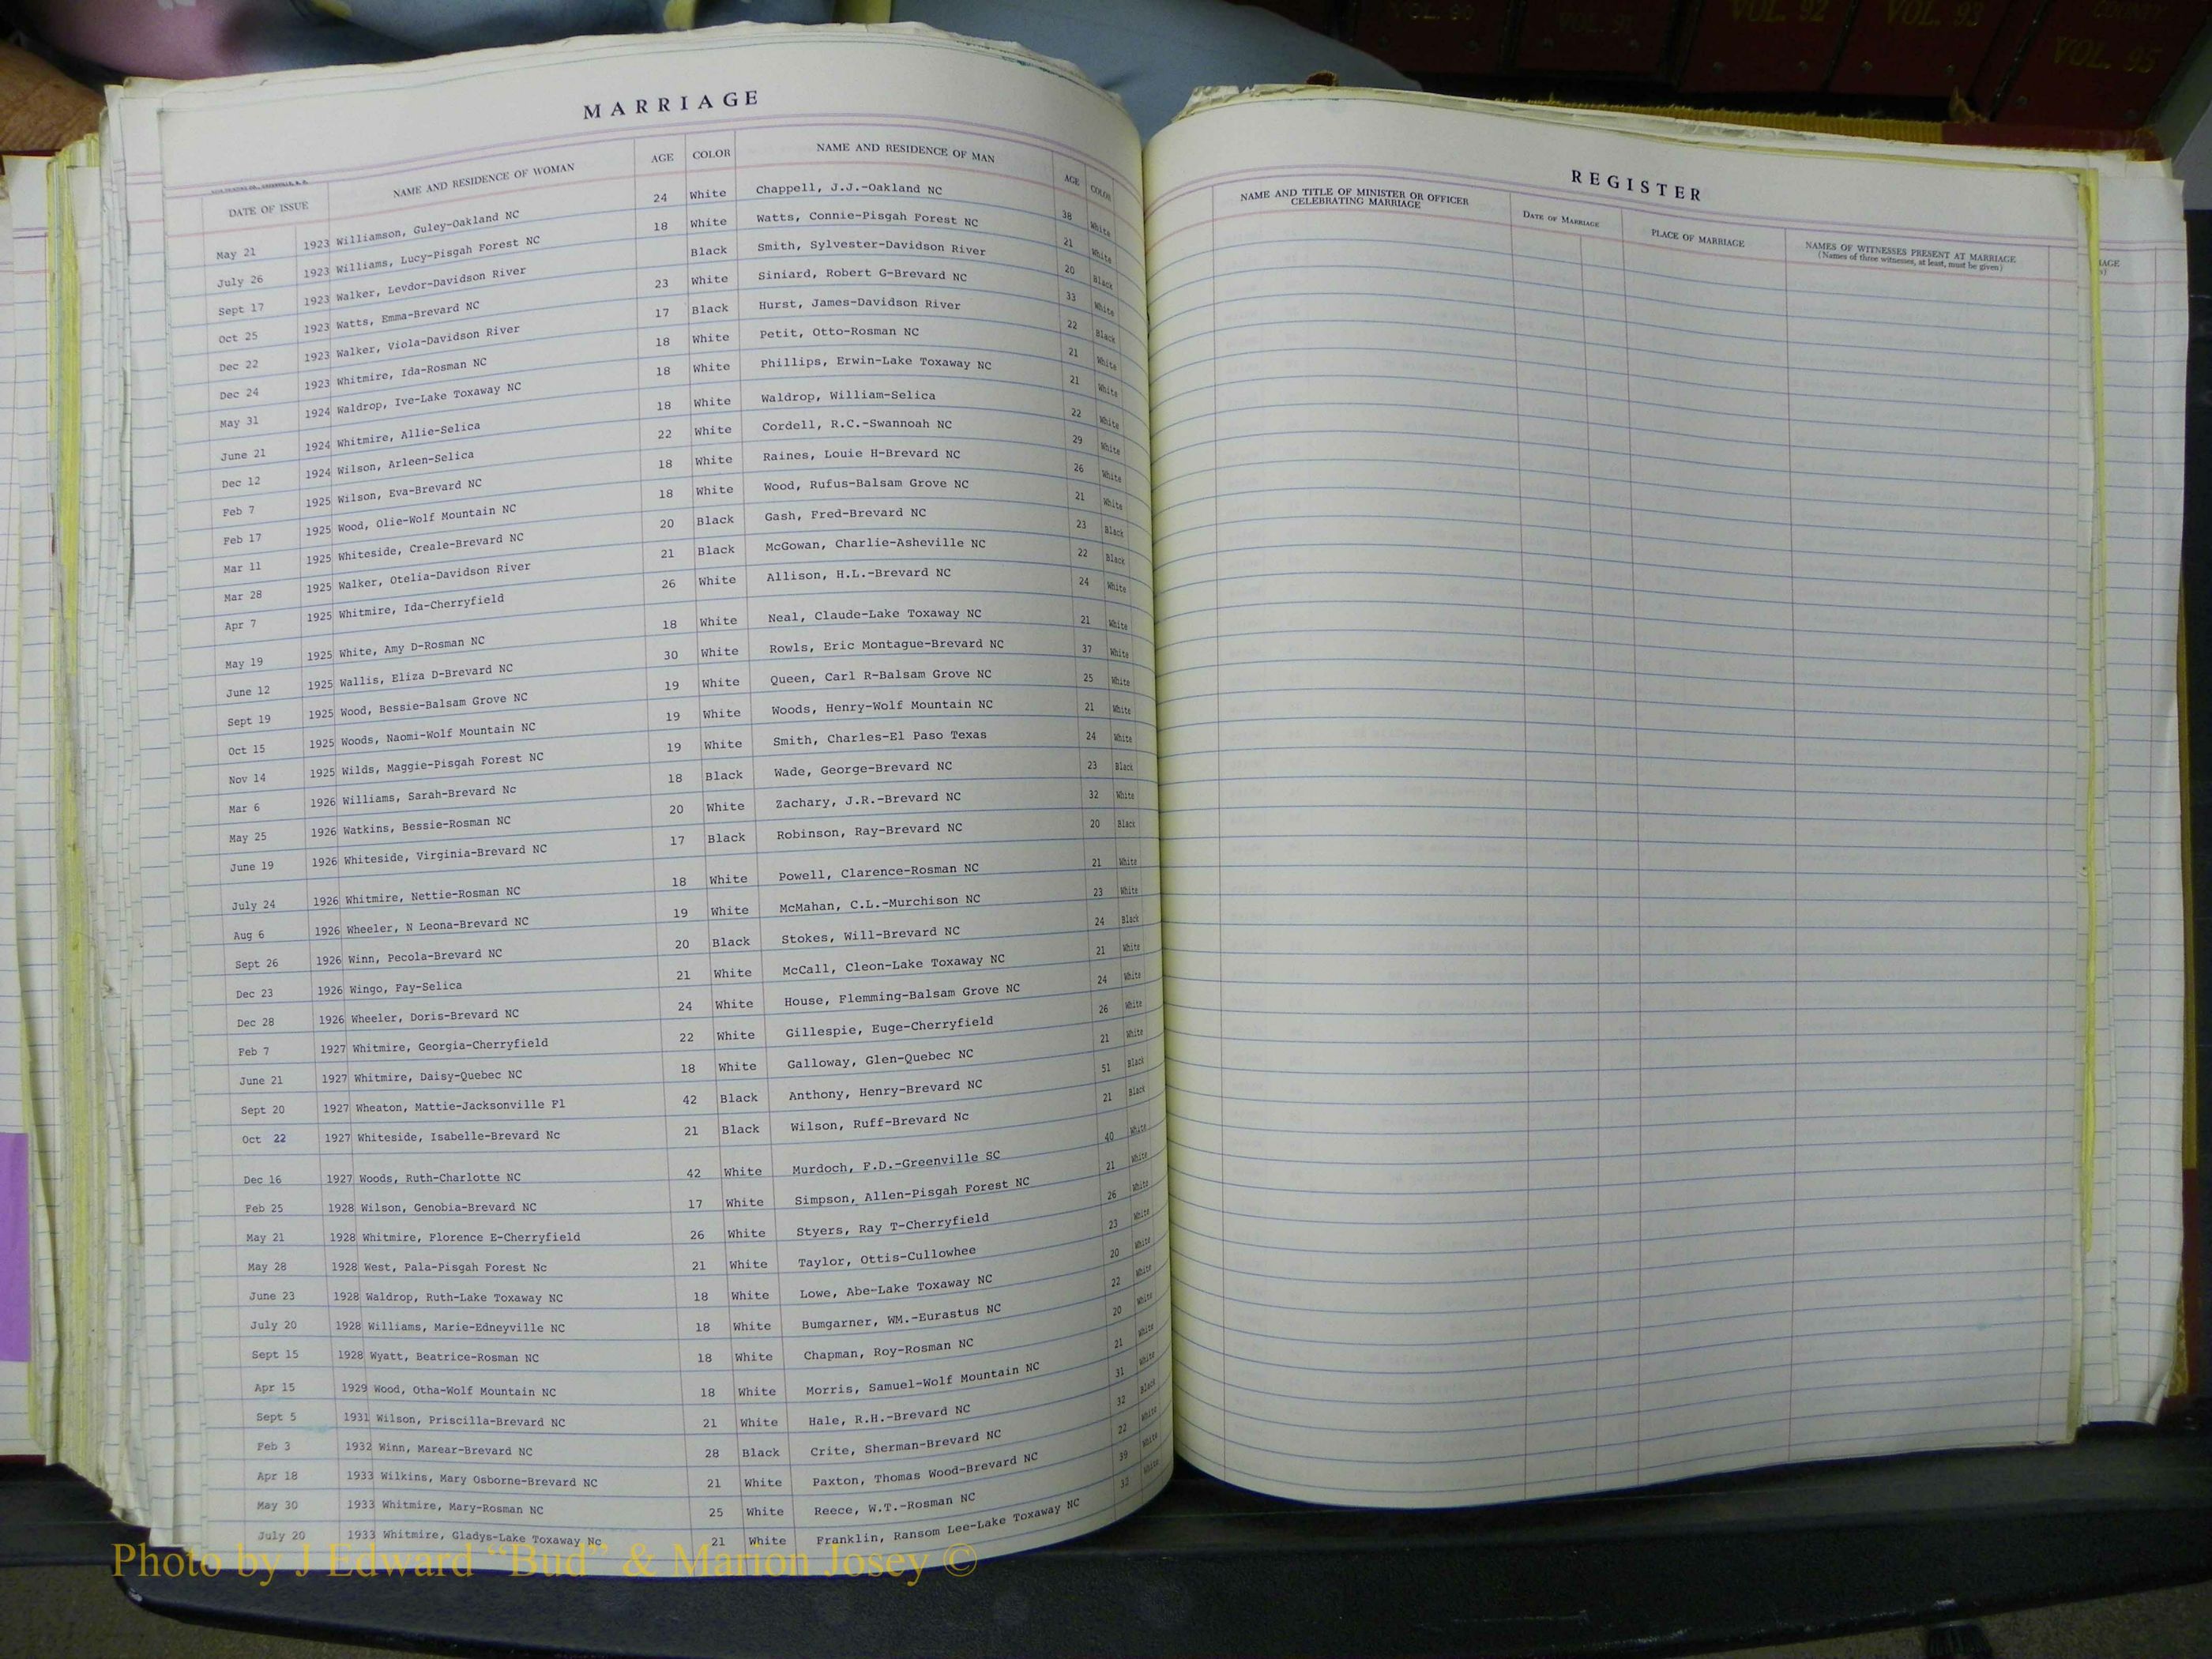 VOL. 90
VOL. 91
VOL. 92
VOL. 93
COUNTY
VOL. 95
MARRIAGE
DATE OF ISSUE NAME AND RESIDENCE OF WOMAN AGE COLOR NAME AND RESIDENCE OF MAN AGE COLOR
May 21 1923 Williamson, Guley-Oakland NC 24 White Chappell, J.J.-Oakland NC 38 White
July 26 1923 Williams, Lucy-Pisgah Forest NC 18 White Watts, Connie-Pisgah Forest NC 21 White
Sept 17 1923 Walker, Levdor-Davidson River Black Smith, Sylvester-Davidson River 20 Black
Oct 25 1923 Watts, Emma-Brevard NC 23 White Siniard, Robert G-Brevard NC 33 White
Dec 22 1923 Walker, Viola-Davidson River 17 Black Hurst, James-Davidson River 22 Black
Dec 24 1923 Whitmire, Ida-Rosman NC 18 White Petit, Otto-Rosman NC 21 White
May 31 1924 Waldrop, Ive-Lake Toxaway NC 18 White Phillips, Erwin-Lake Toxaway NC 21 White
June 21 1924 Whitmire, Allie-Selica 18 White Waldrop, William-Selica 22 White
Dec 12 1924 Wilson, Arleen-Selica 22 White Cordell, R.C.-Swannoah NC 29 White
Feb 7 1925 Wilson, Eva-Brevard NC 18 White Raines, Louie H-Brevard NC 26 White
Feb 17 1925 Wood, Olie-Wolf Mountain NC 18 White Wood, Rufus-Balsam Grove NC 21 White
Mar 11 1925 Whiteside, Creale-Brevard NC 20 Black Gash, Fred-Brevard NC 23 Black
Mar 28 1925 Walker, Otelia-Davidson River 21 Black McGowan, Charlie-Asheville NC 22 Black
Apr 7 1925 Whitmire, Ida-Cherryfield 26 White Allison, H.L.-Brevard NC 24 White
May 19 1925 White, Amy D-Rosman NC 18 White Neal, Claude-Lake Toxaway NC 21 White
June 12 1925 Wallis, Eliza D-Brevard NC 30 White Rowls, Eric Montague-Brevard NC 37 White
Sept 19 1925 Wood, Bessie-Balsam Grove NC 19 White Queen, Carl R-Balsam Grove NC 25 White
Oct 15 1925 Woods, Naomi-Wolf Mountain NC 19 White Woods, Henry-Wolf Mountain NC 21 White
Nov 14 1925 Wilds, Maggie-Pisgah Forest NC 19 White Smith, Charles-El Paso Texas 24 White
Mar 6 1926 Williams, Sarah-Brevard Nc 18 Black Wade, George-Brevard NC 23 Black
May 25 1926 Watkins, Bessie-Rosman NC 20 White Zachary, J.R.-Brevard NC 32 White
June 19 1926 Whiteside, Virginia-Brevard NC 17 Black Robinson, Ray-Brevard NC 20 Black
July 24 1926 Whitmire, Nettie-Rosman NC 18 White Powell, Clarence-Rosman NC 21 White
Aug 6 1926 Wheeler, N Leona-Brevard NC 19 White McMahan, C.L.-Murchison NC 23 White
Sept 26 1926 Winn, Pecola-Brevard NC 20 Black Stokes, Will-Brevard NC 24 Black
Dec 23 1926 Wingo, Fay-Selica 21 White McCall, Cleon-Lake Toxaway NC 21 White
Dec 28 1926 Wheeler, Doris-Brevard NC 24 White House, Flemming-Balsam Grove NC 24 White
Feb 7 1927 Whitmire, Georgia-Cherryfield 22 White Gillespie, Euge-Cherryfield 26 White
June 21 1927 Whitmire, Daisy-Quebec NC 18 White Galloway, Glen-Quebec NC 21 White
Sept 20 1927 Wheaton, Mattie-Jacksonville Fl 42 Black Anthony, Henry-Brevard NC 51 Black
Oct 22 1927 Whiteside, Isabelle-Brevard Nc 21 Black Wilson, Ruff-Brevard Nc 21 Black
Dec 16 1927 Woods, Ruth-Charlotte NC 42 White Murdoch, F.D.-Greenville SC 40 White
Feb 25 1928 Wilson, Genobia-Brevard NC 17 White Simpson, Allen-Pisgah Forest NC 21 White
May 21 1928 Whitmire, Florence E-Cherryfield 26 White Styers, Ray T-Cherryfield 26 White
May 28 1928 West, Pala-Pisgah Forest Nc 21 White Taylor, Ottis-Cullowhee 23 White
June 23 1928 Waldrop, Ruth-Lake Toxaway NC 18 White Lowe, Abe-Lake Toxaway NC 20 White
July 20 1928 Williams, Marie-Edneyville NC 18 White Bumgarner, WM.-Eurastus NC 22 White
Sept 15 1928 Wyatt, Beatrice-Rosman NC 18 White Chapman, Roy-Rosman NC 20 White
Apr 15 1929 Wood, Otha-Wolf Mountain NC 18 White Morris, Samuel-Wolf Mountain NC 21 White
Sept 5 1931 Wilson, Priscilla-Brevard NC 21 White Hale, R.H.-Brevard NC 31 White
Feb 3 1932 Winn, Marear-Brevard NC 28 Black Crite, Sherman-Brevard NC 32 Black
Apr 18 1933 Wilkins, Mary Osborne-Brevard NC 21 White Paxton, Thomas Wood-Brevard NC 22 White
May 30 1933 Whitmire, Mary-Rosman NC 25 White Reece, W.T.-Rosman NC 39 White
July 20 1933 Whitmire, Gladys-Lake Toxaway Nc 21 White Franklin, Ransom Lee-Lake Toxaway NC 32 White
REGISTER
NAME AND TITLE OF MINISTER OR OFFICER CELEBRATING MARRIAGE
DATE OF MARRIAGE
PLACE OF MARRIAGE
NAMES OF WITNESSES PRESENT AT MARRIAGE
(Names of three witnesses, at least, must be given)
Photo by J Edward “Bud” & Marion Josey ©